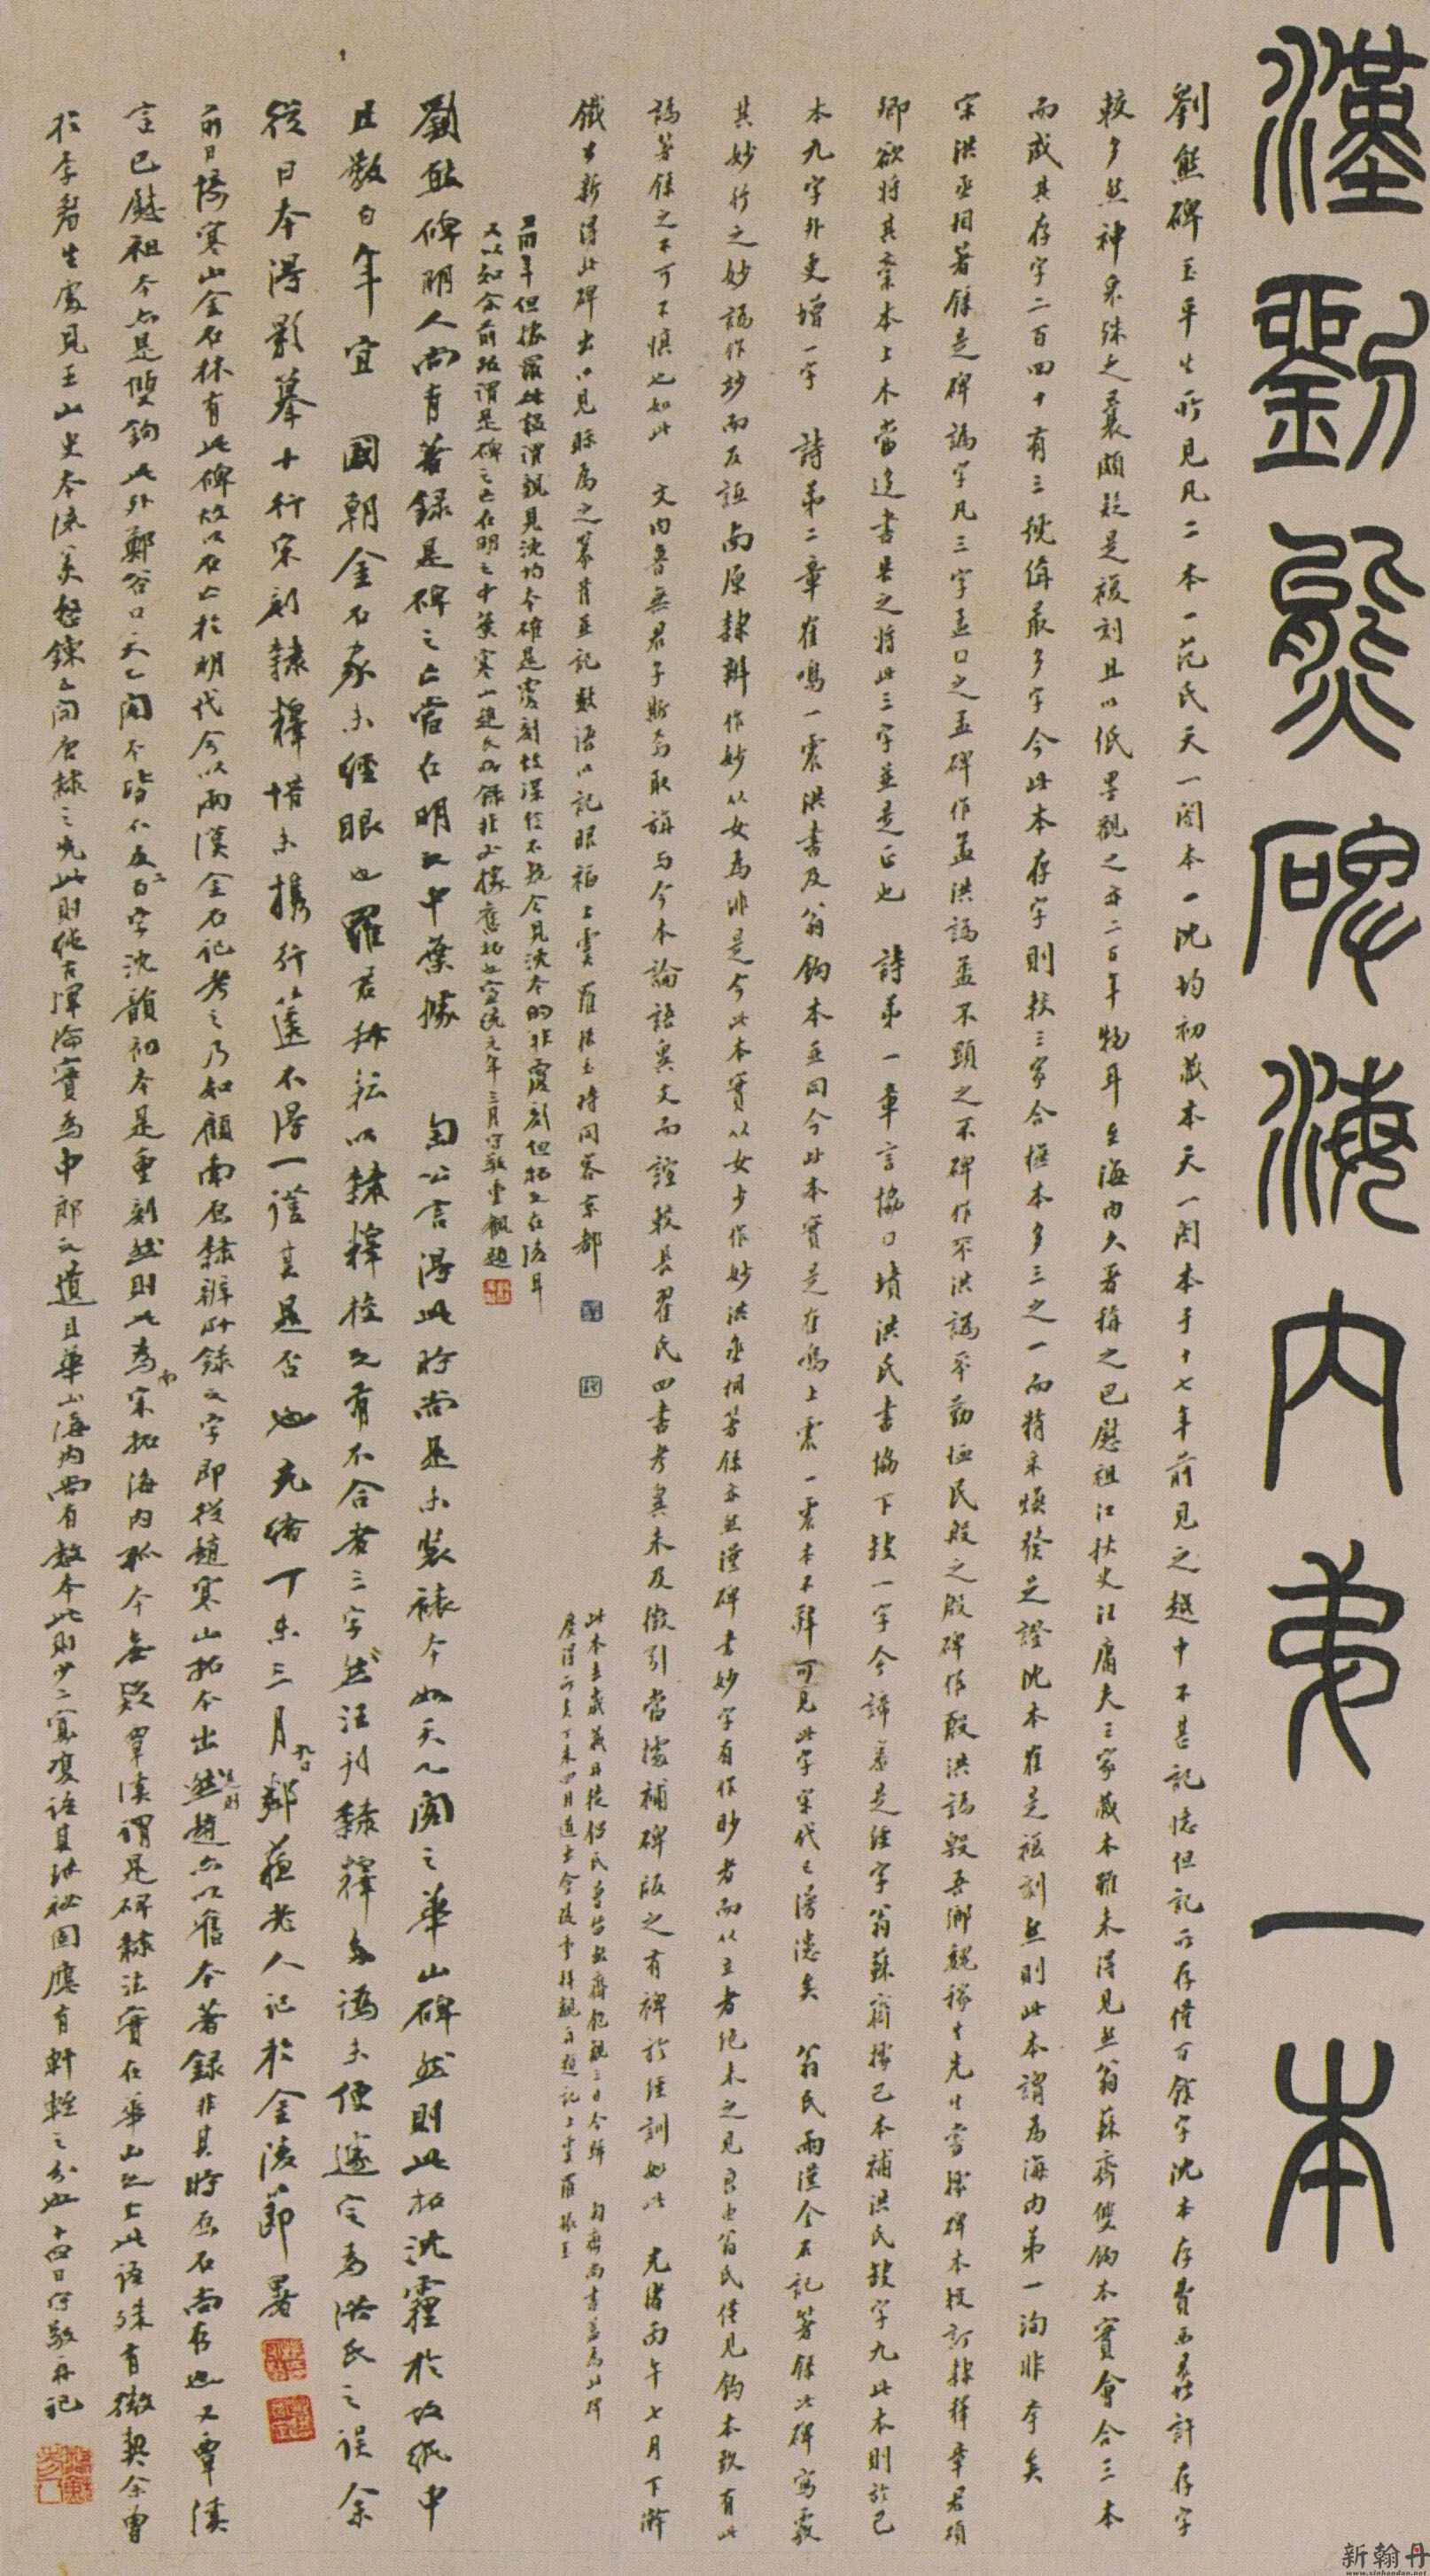 漢劉熊碑海內弟一本
劉熊碑玉平生所見凡二本一范氏天一閣本一沈均初藏本天一閣本于十七年前見之越中不甚記憶但記所存僅百餘字沈本存貴西 許存字
較多然神采殊乏 頗疑是複刻且以低墨觀之亦二百年物耳至海內久著稱之巴慰祖江秋史汪庸夫三家藏本雖未得見然翁蘇齋雙鈎本實會合三本
而成其存字二百四十有三號偁最多字今此本存字則校三家合橅本多三之一而精采煥發足證沈本確是複刻然則此本謂為海內弟一洵非夸矣
宋洪丞相著錄是碑譌字凡三字孟口之孟碑作孟洪譌孟不顯之不碑作不洪譌平勤恤民殷之殷碑作殷洪譌毀吾鄉魏稼生先生嘗據碑本校訂隸釋章君碩
卿欲將其稾本上木當迻書告之將此三字並是正也 詩弟一章言協口墳洪氏書協下缺一字今諦審是經字翁蘇齋據巴本補洪氏缺字九此本則於巴
本九字外更增一字 詩弟二章隺鳴一震洪書及翁鈎本並同今此本實是隺鳴上震一震本不辭可見此字宋代已漫漶矣 翁氏兩漢金石記著錄此碑寫覈
其妙行之妙譌作玅而反詆南原隸辨作妙從女為非是今此本實從女少作妙洪丞相著錄亦然漢碑書妙字有作眇者而從立者絕未之見良由翁氏僅見鈎本致有此
譌著錄之不可不慎也如此 文內魯無君子斯焉取旃与今本論語異文而證較長翟氏四書考異未及徵引當據補碑版之有裨於經訓如此 光緒丙午七月下澣
鐵公新得此碑出以見眎為之 並記數語以記眼福上虞羅振玉時同客京都
此本去歲 借氏 三日今歸 匋齋尚書 山碑
丁未四月 拜觀再題記上虞羅振玉
前年但據羅 謂親見沈均本確是覆刻故深信不疑今見沈本的非覆刻但拓 在後耳
又以知余前跋謂是碑之亡在明之中葉寒山趙氏所錄非必據舊拓也宣統元年三月守敬重觀題
劉熊碑明人尚有著錄是碑之亡當在明之中葉據 匋公言得此時尚是未裝裱本如天一閣之華山碑然則此拓沈霾於故紙中
且數百年宜 國朝金石家未經眼也羅君叔耘以隸釋校之有不合者三字然汪刊隸釋多譌未便遽定為洪氏之誤余
從日本得影摹十行宋刻隸釋惜未攜行篋不得一證其是否也光緒丁未三月九日鄰蘇老人記於金陵節署
前日據寒山金石林有此碑故以石亡於明代今以兩漢金石記考之乃知顧南原隸辨所錄之字即從趙寒山拓本出然則趙亦以舊本著錄非其時原石尚存也又覃溪
言巴慰祖本亦是雙鉤此外鄭谷口天一閣不皆不及二百字沈韻初本是重刻然則此為宋拓海內孤本無疑覃溪謂是碑隸法實在華山之上此語殊有微契余曾
於李 生處見王山史本流美整鍊 開唐隸之先此則純古渾淪實為中郎之遺且華山海內尚有數本此則少二寡雙語其珍祕固應有軒輊之分也十四日守敬再記
新翰丹
www.xinhandan.net